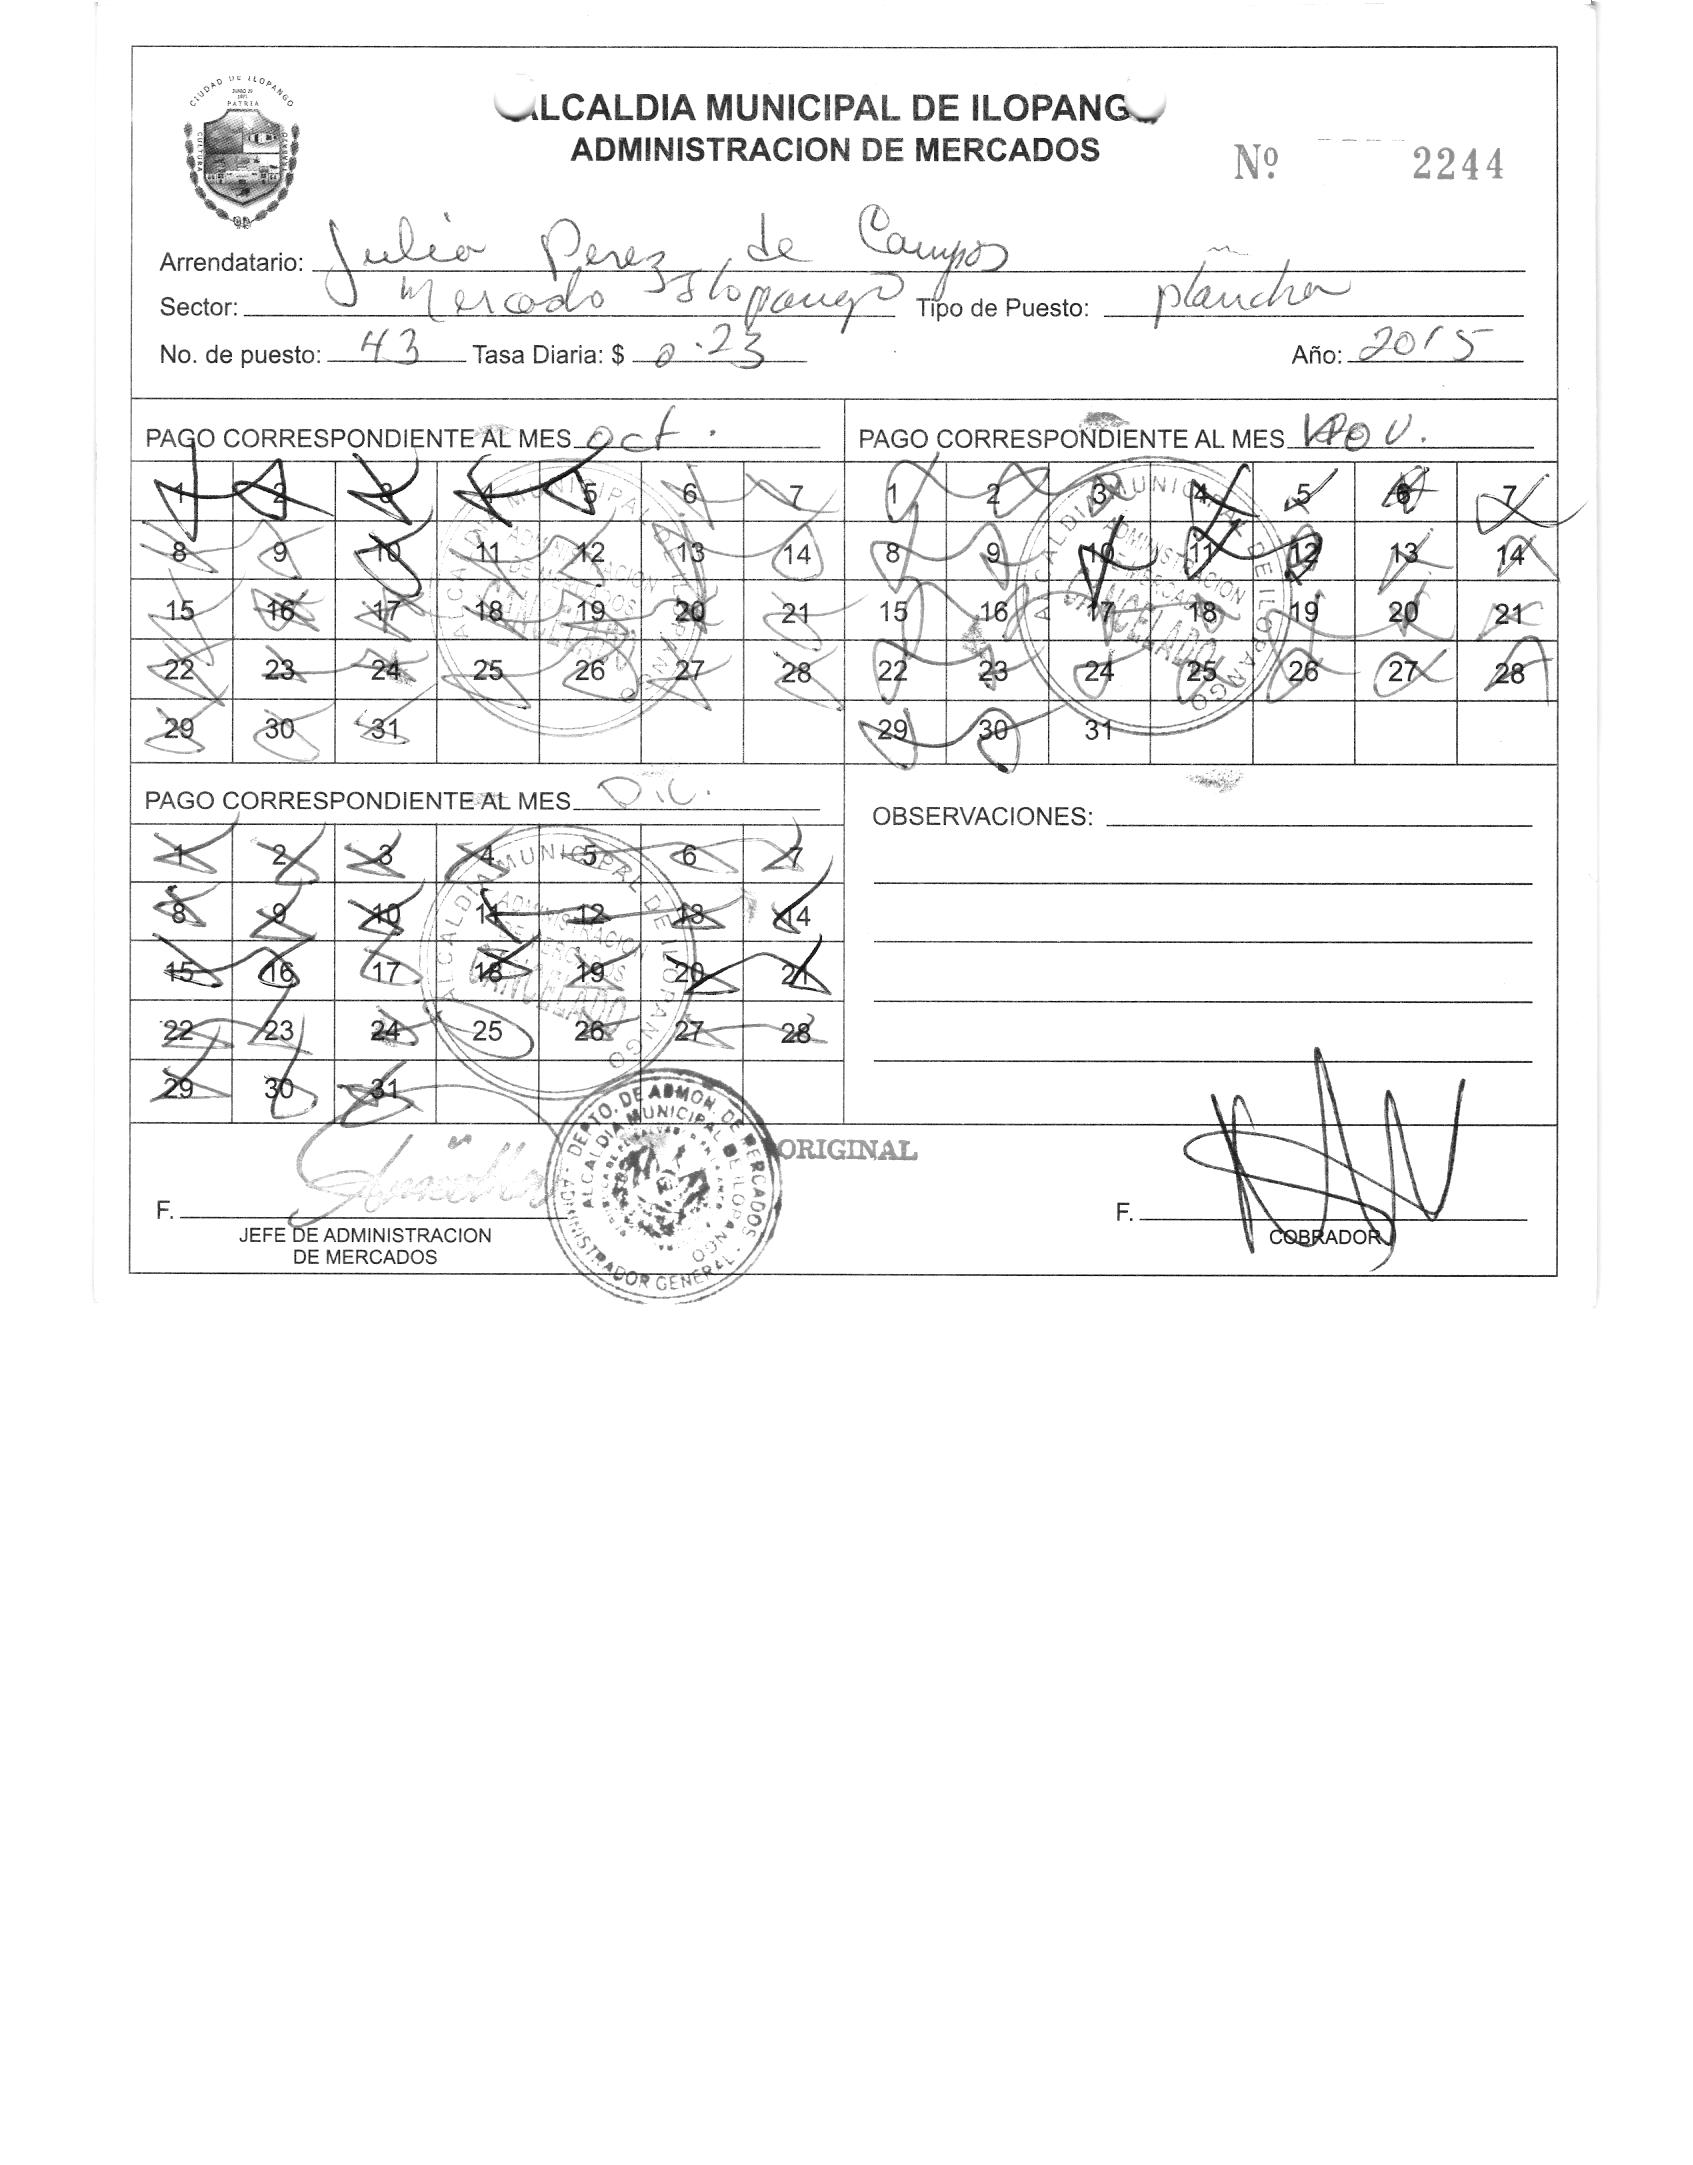 CIUDAD DE ILOPANGO
PATRIA
CULTURA
LCALDIA MUNICIPAL DE ILOPANG
ADMINISTRACION DE MERCADOS
Nº 2244
Arrendatario: Julia Perez de Campos
Sector: Mercado Ilopango Tipo de Puesto: plancha
No. de puesto: 43 Tasa Diaria: $ 0.23 Año: 2015
PAGO CORRESPONDIENTE AL MES oct. PAGO CORRESPONDIENTE AL MES Nov.
1 2 3 4 5 6 7 1 2 3 4 5 6 7
8 9 10 11 12 13 14 8 9 10 11 12 13 14
15 16 17 18 19 20 21 15 16 17 18 19 20 21
22 23 24 25 26 27 28 22 23 24 25 26 27 28
29 30 31 29 30 31
ALCALDIA MUNICIPAL DE ILOPANGO
ADMINISTRACION
DE MERCADOS
CANCELADO
ALCALDIA MUNICIPAL DE ILOPANGO
ADMINISTRACION
DE MERCADOS
CANCELADO
PAGO CORRESPONDIENTE AL MES Dic. OBSERVACIONES:
1 2 3 4 5 6 7
8 9 10 11 12 13 14
15 16 17 18 19 20 21
22 23 24 25 26 27 28
29 30 31
ALCALDIA MUNICIPAL DE ILOPANGO
ADMINISTRACION
DE MERCADOS
CANCELADO
DEPTO. DE ADMON. DE MERCADOS
ALCALDIA MUNICIPAL DE ILOPANGO
ADMINISTRADOR GENERAL
ORIGINAL
F. F.
JEFE DE ADMINISTRACION COBRADOR
DE MERCADOS